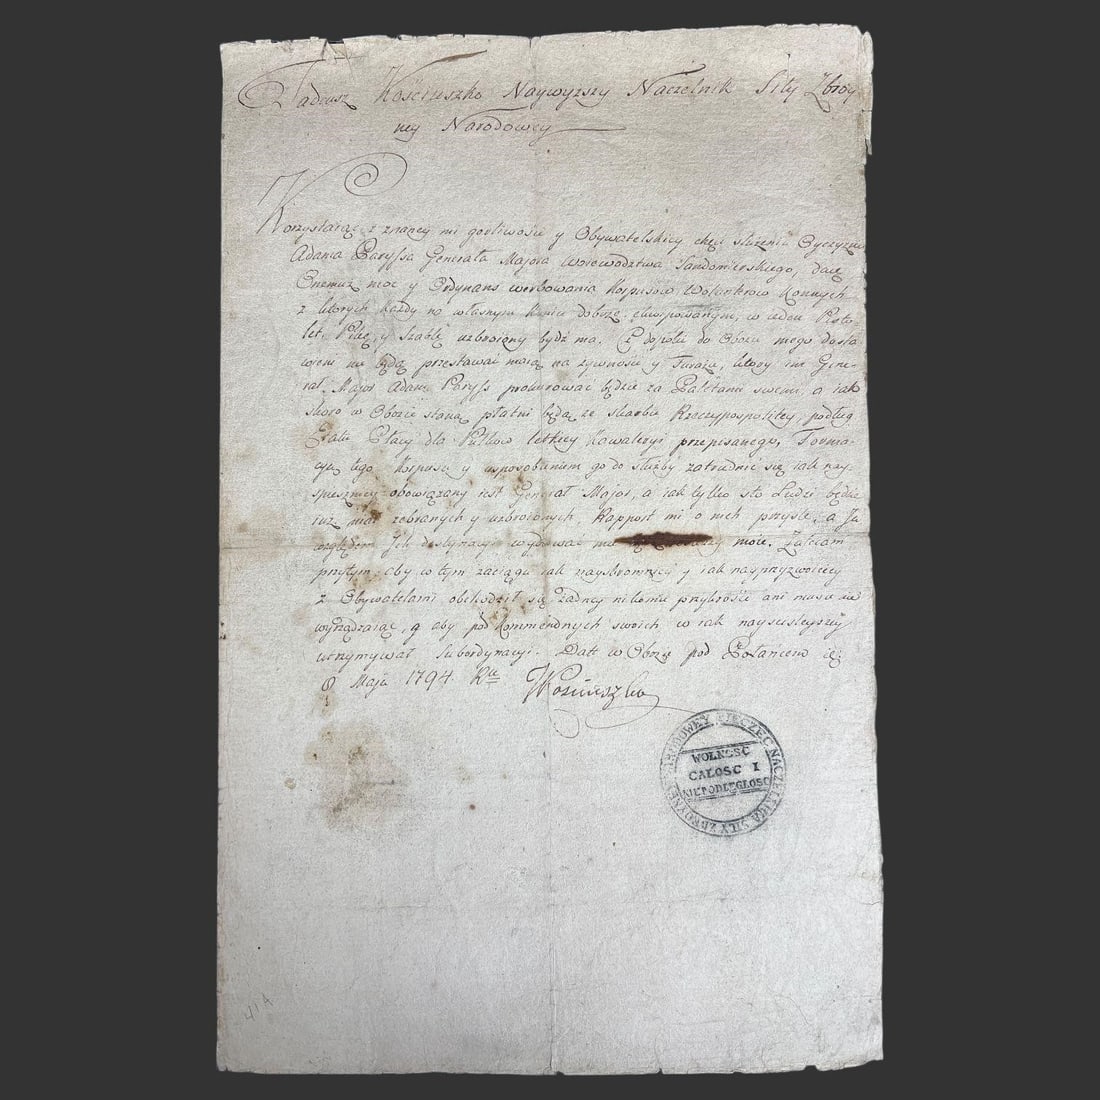 Tadeusz Kościuszko Naywyższy Naczelnik Siły Zbroy
ney Narodowey
Korzystaiąc z znaney mi gorliwości y Obywatelskiey chęci służenia Oyczyznie
Adama Paryssa Generała Majora Woiewództwa Sandomierskiego, daię
Onemuż moc y Ordynans werbowania Korpusów Wolonterow Konnych
z których każdy na własnym koniu dobrze ekwipowanym, w ieden Pisto-
let, Pikę, y Szablę uzbroiony bydź ma. I dopóki do Obozu mego dosta
wieni nie będą przestawać maią na żywności y Furażu, który im Gene-
rał Major Adam Paryss prokurować będzie za Kwitami swemi, a iak
skoro w Obozie staną płatni będą ze skarbu Rzeczypospolitey, podług
Etatu Płacy dla Pułków letkiey Kawaleryi przepisanego. Forma-
cyą tego Korpusu y usposobieniem go do służby zatrudnić się iak nay
spieszniey obowiązany iest Generał Major, a iak tylko sto Ludzi będzie
iuż miał zebranych y uzbroionych, Rapport mi o nich przyśle, a Ja
względem Ich destynacyi wydawać mu moie. Zalecam
przytym, aby w tym zaciągu iak nayskromniey y iak nayprzyzwoiciey
z Obywatelami obchodził się żadney nikomu przykrości ani musu nie
wyrządzaiąc, y aby pod kommendnych swoich w iak nayściśleyszey
utrzymywał Subordynacyi. Datt w Obozie pod Połańcem d:
8 Maja 1794 Rku Kościuszko
PIECZĘĆ NACZELNIKA SIŁY ZBROYNEY NARODOWEY
WOLNOSC
CAŁOSC I
NIEPODLEGŁOSC
41A